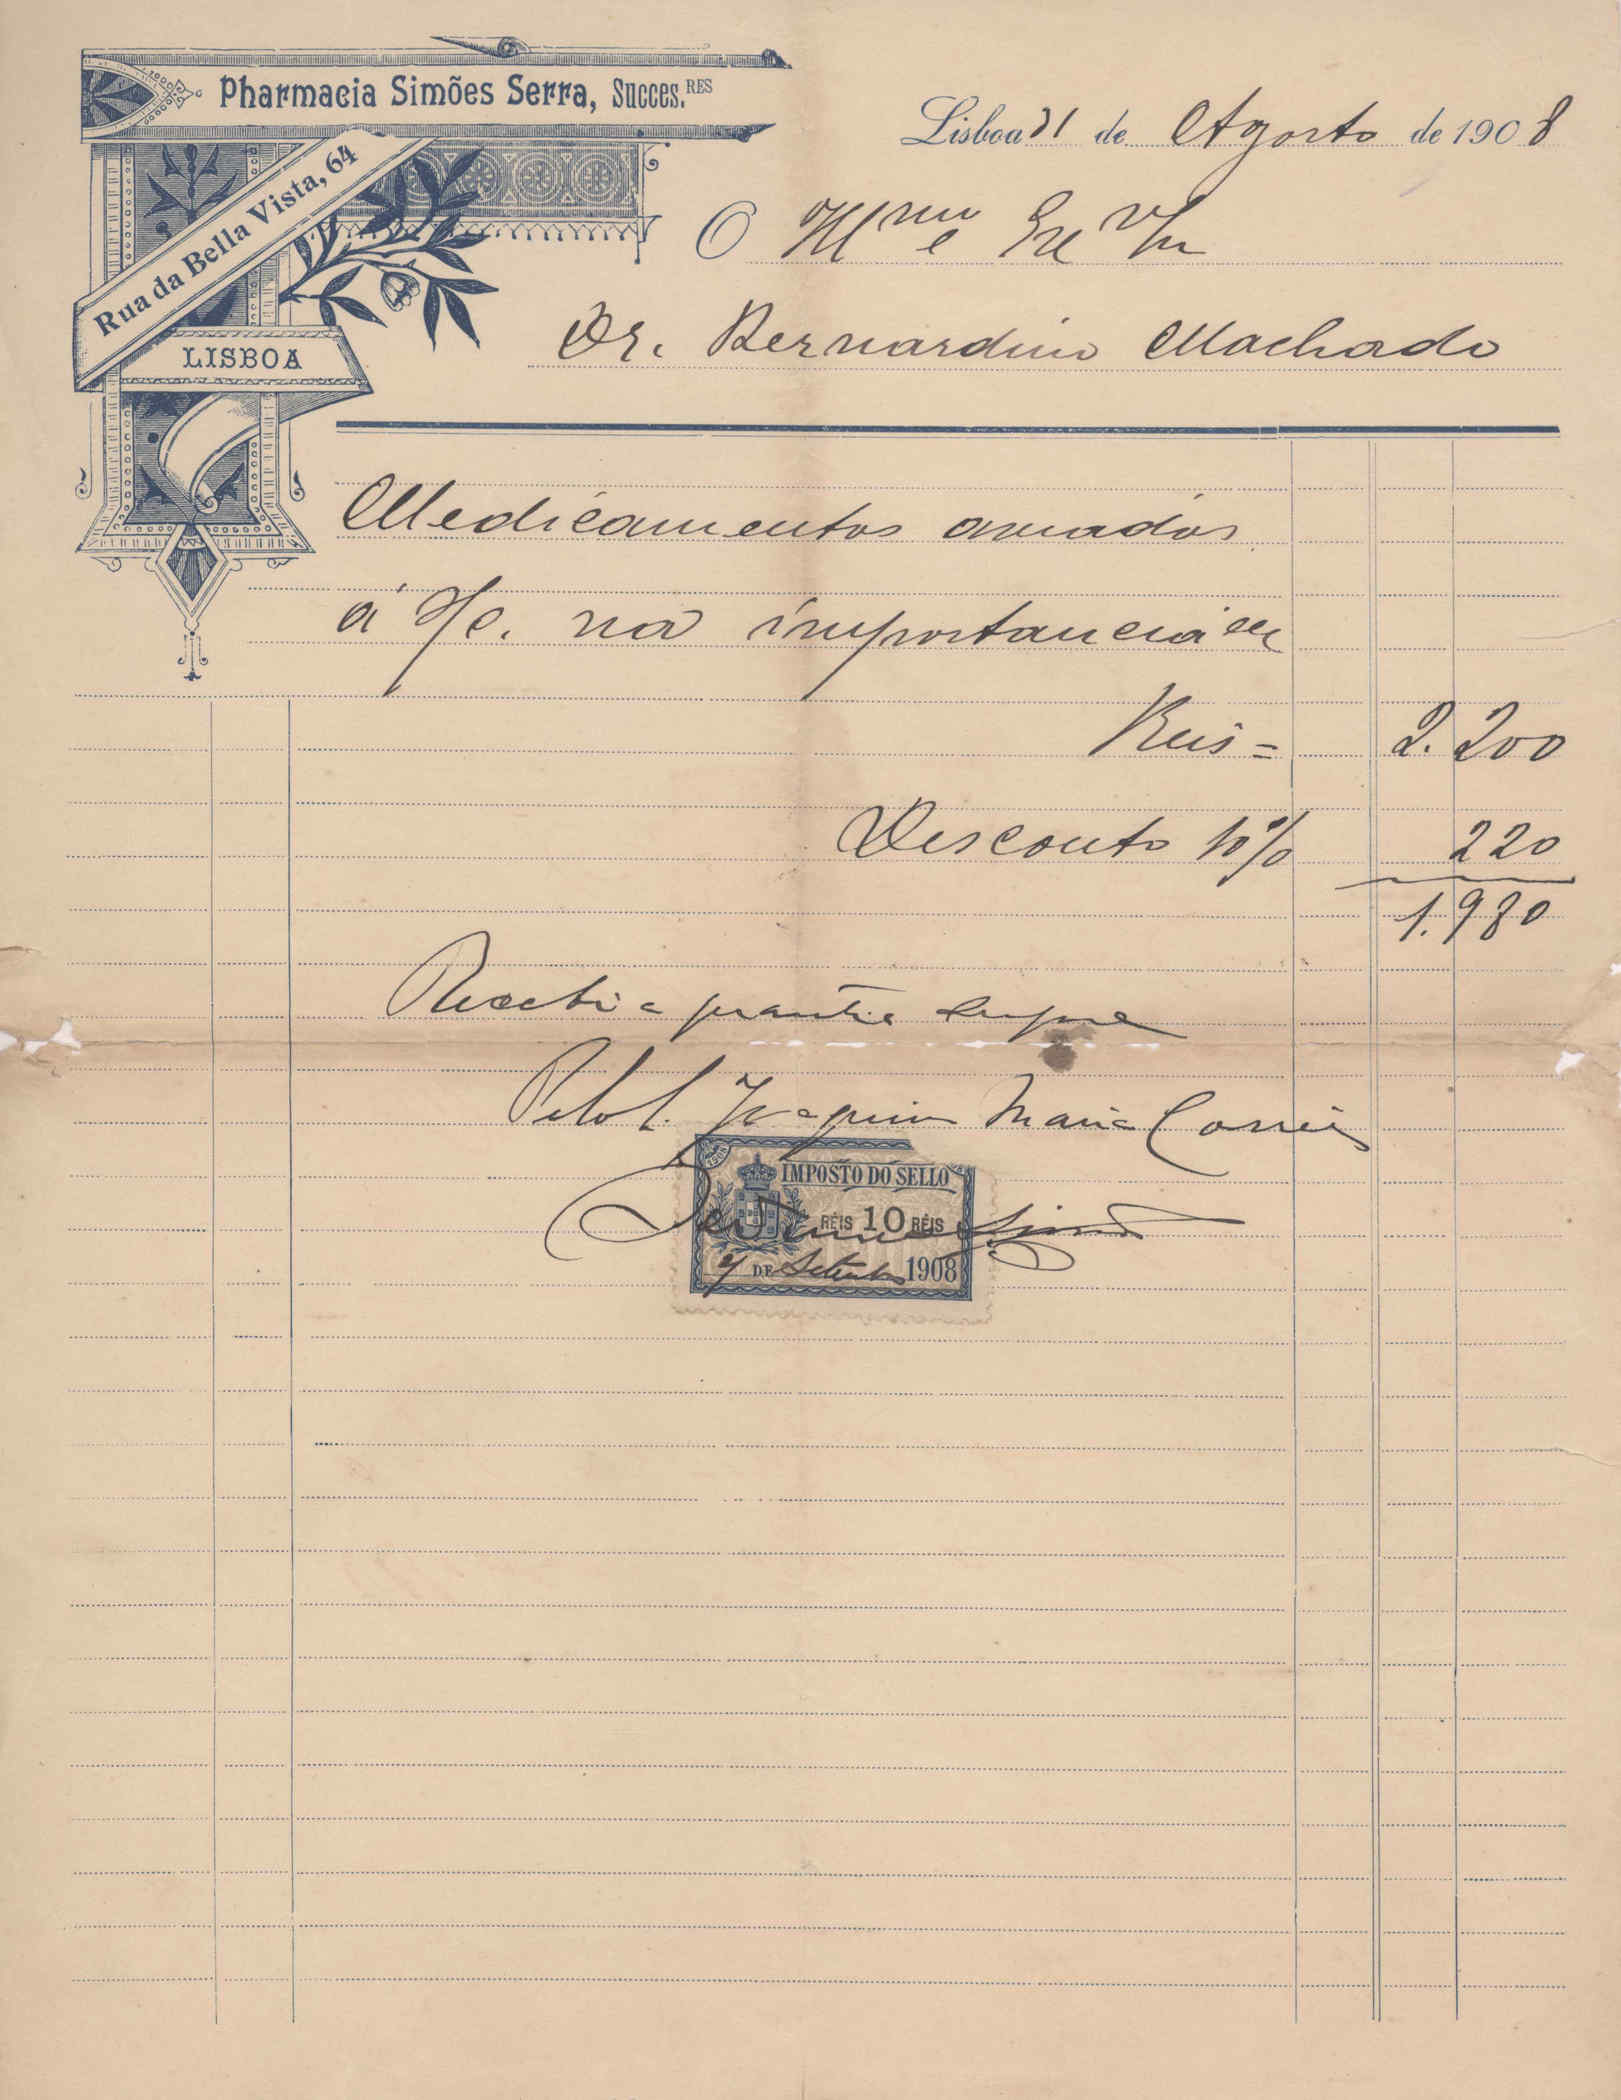 Pharmacia Simões Serra, Succes.RES
Rua da Bella Vista, 64
LISBOA
Lisboa 31 de Agosto de 1908
O Illmo e Exmo Sr
Dr. Bernardino Machado
Medicamentos aviados
á V/e. na importancia de
Reis = 2.200
Desconto 10% 220
1.980
Recebi a quantia supra
Joaquim Maria Correia
IMPOSTO DO SELLO
RÉIS 10 RÉIS
DE Setembro 1908